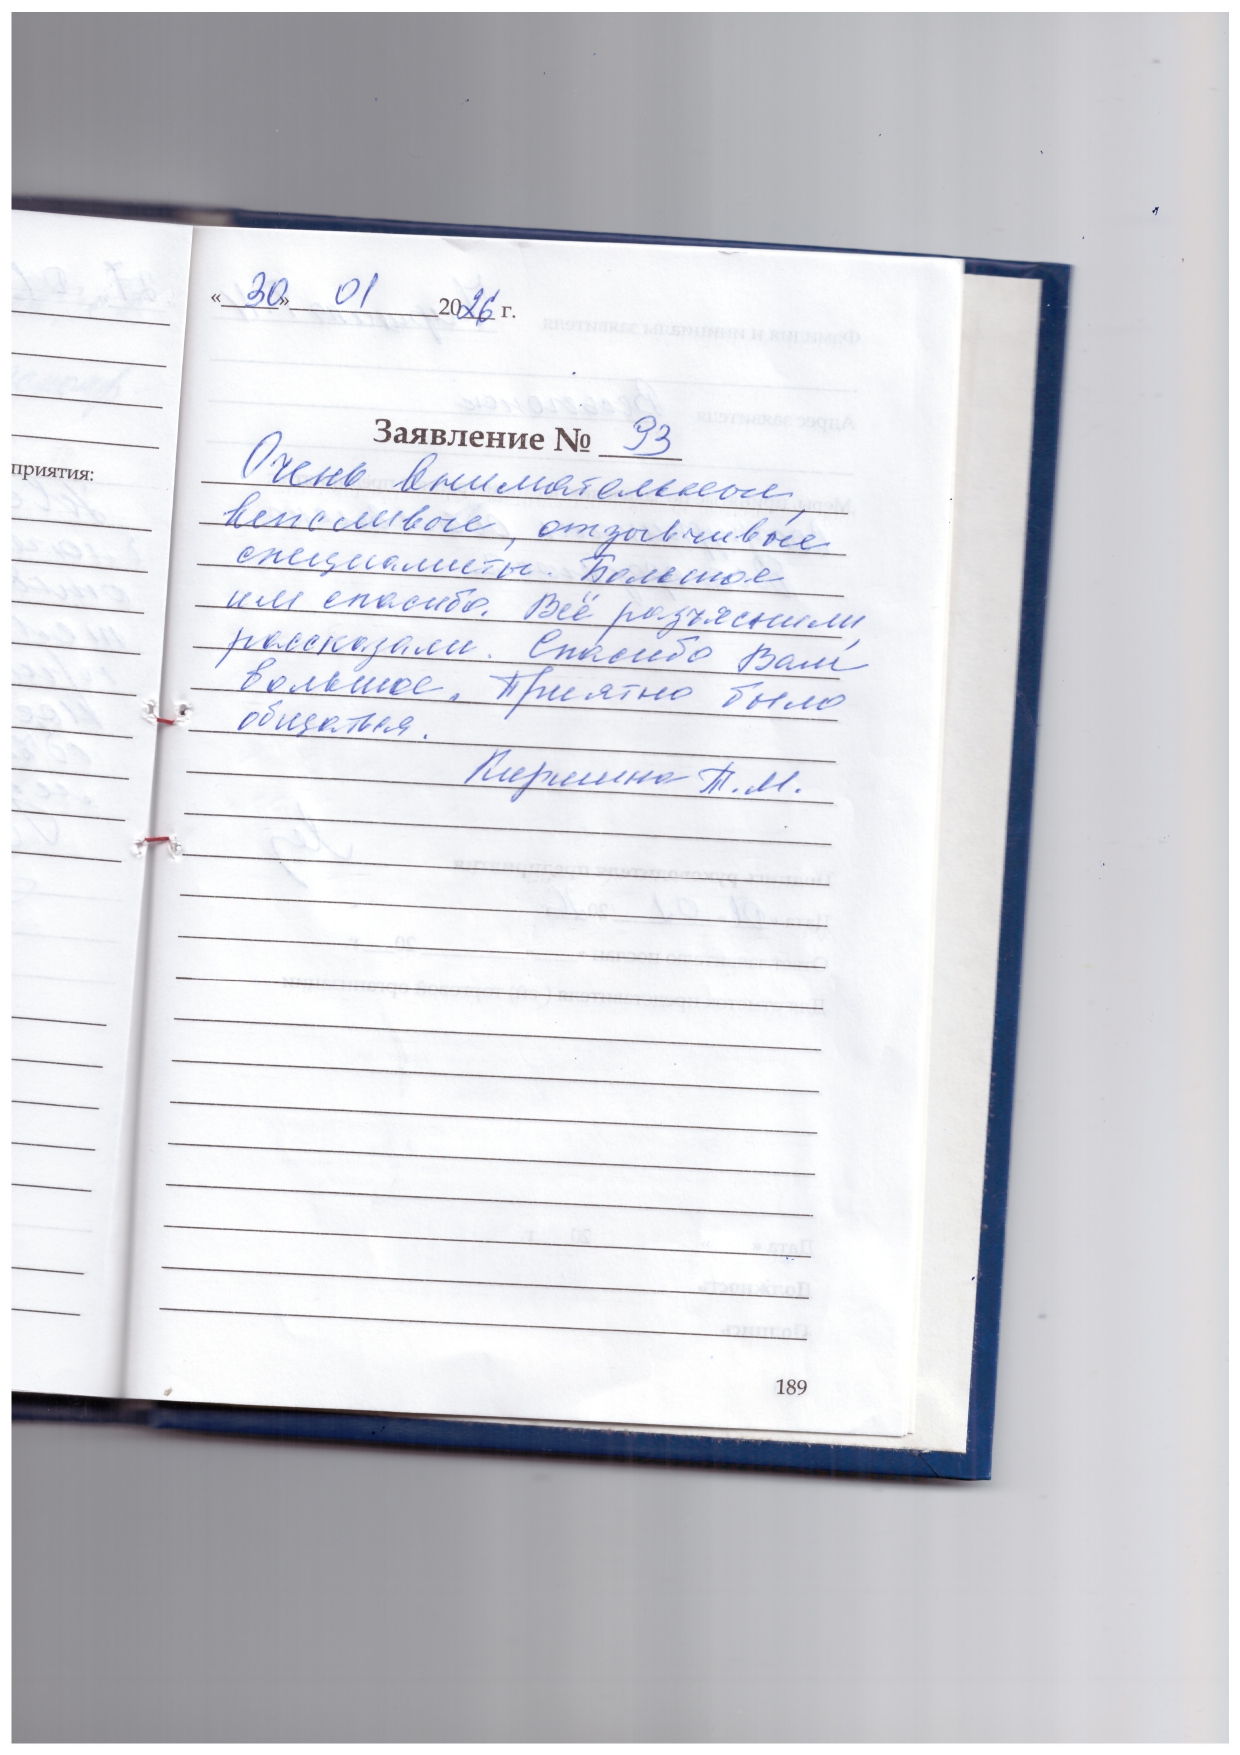 «30» 01 2026 г.
Заявление № 93
приятия:
Очень внимательные,
вежливые, отзывчивые
специалисты. Большое
им спасибо. Всё разъяснили
рассказали. Спасибо Вам
большое. Приятно было
общаться.
Т.М.
189